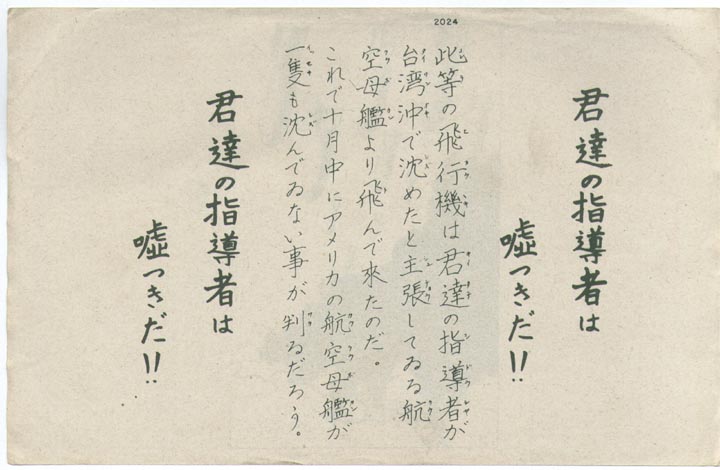 2024
君達の指導者は
嘘つきだ!!
此等の飛行機は君達の指導者が
台湾沖で沈めたと主張してゐる航
空母艦より飛んで來たのだ。
これで十月中にアメリカの航空母艦が
一隻も沈んでゐない事が判るだろう。
君達の指導者は
嘘つきだ!!